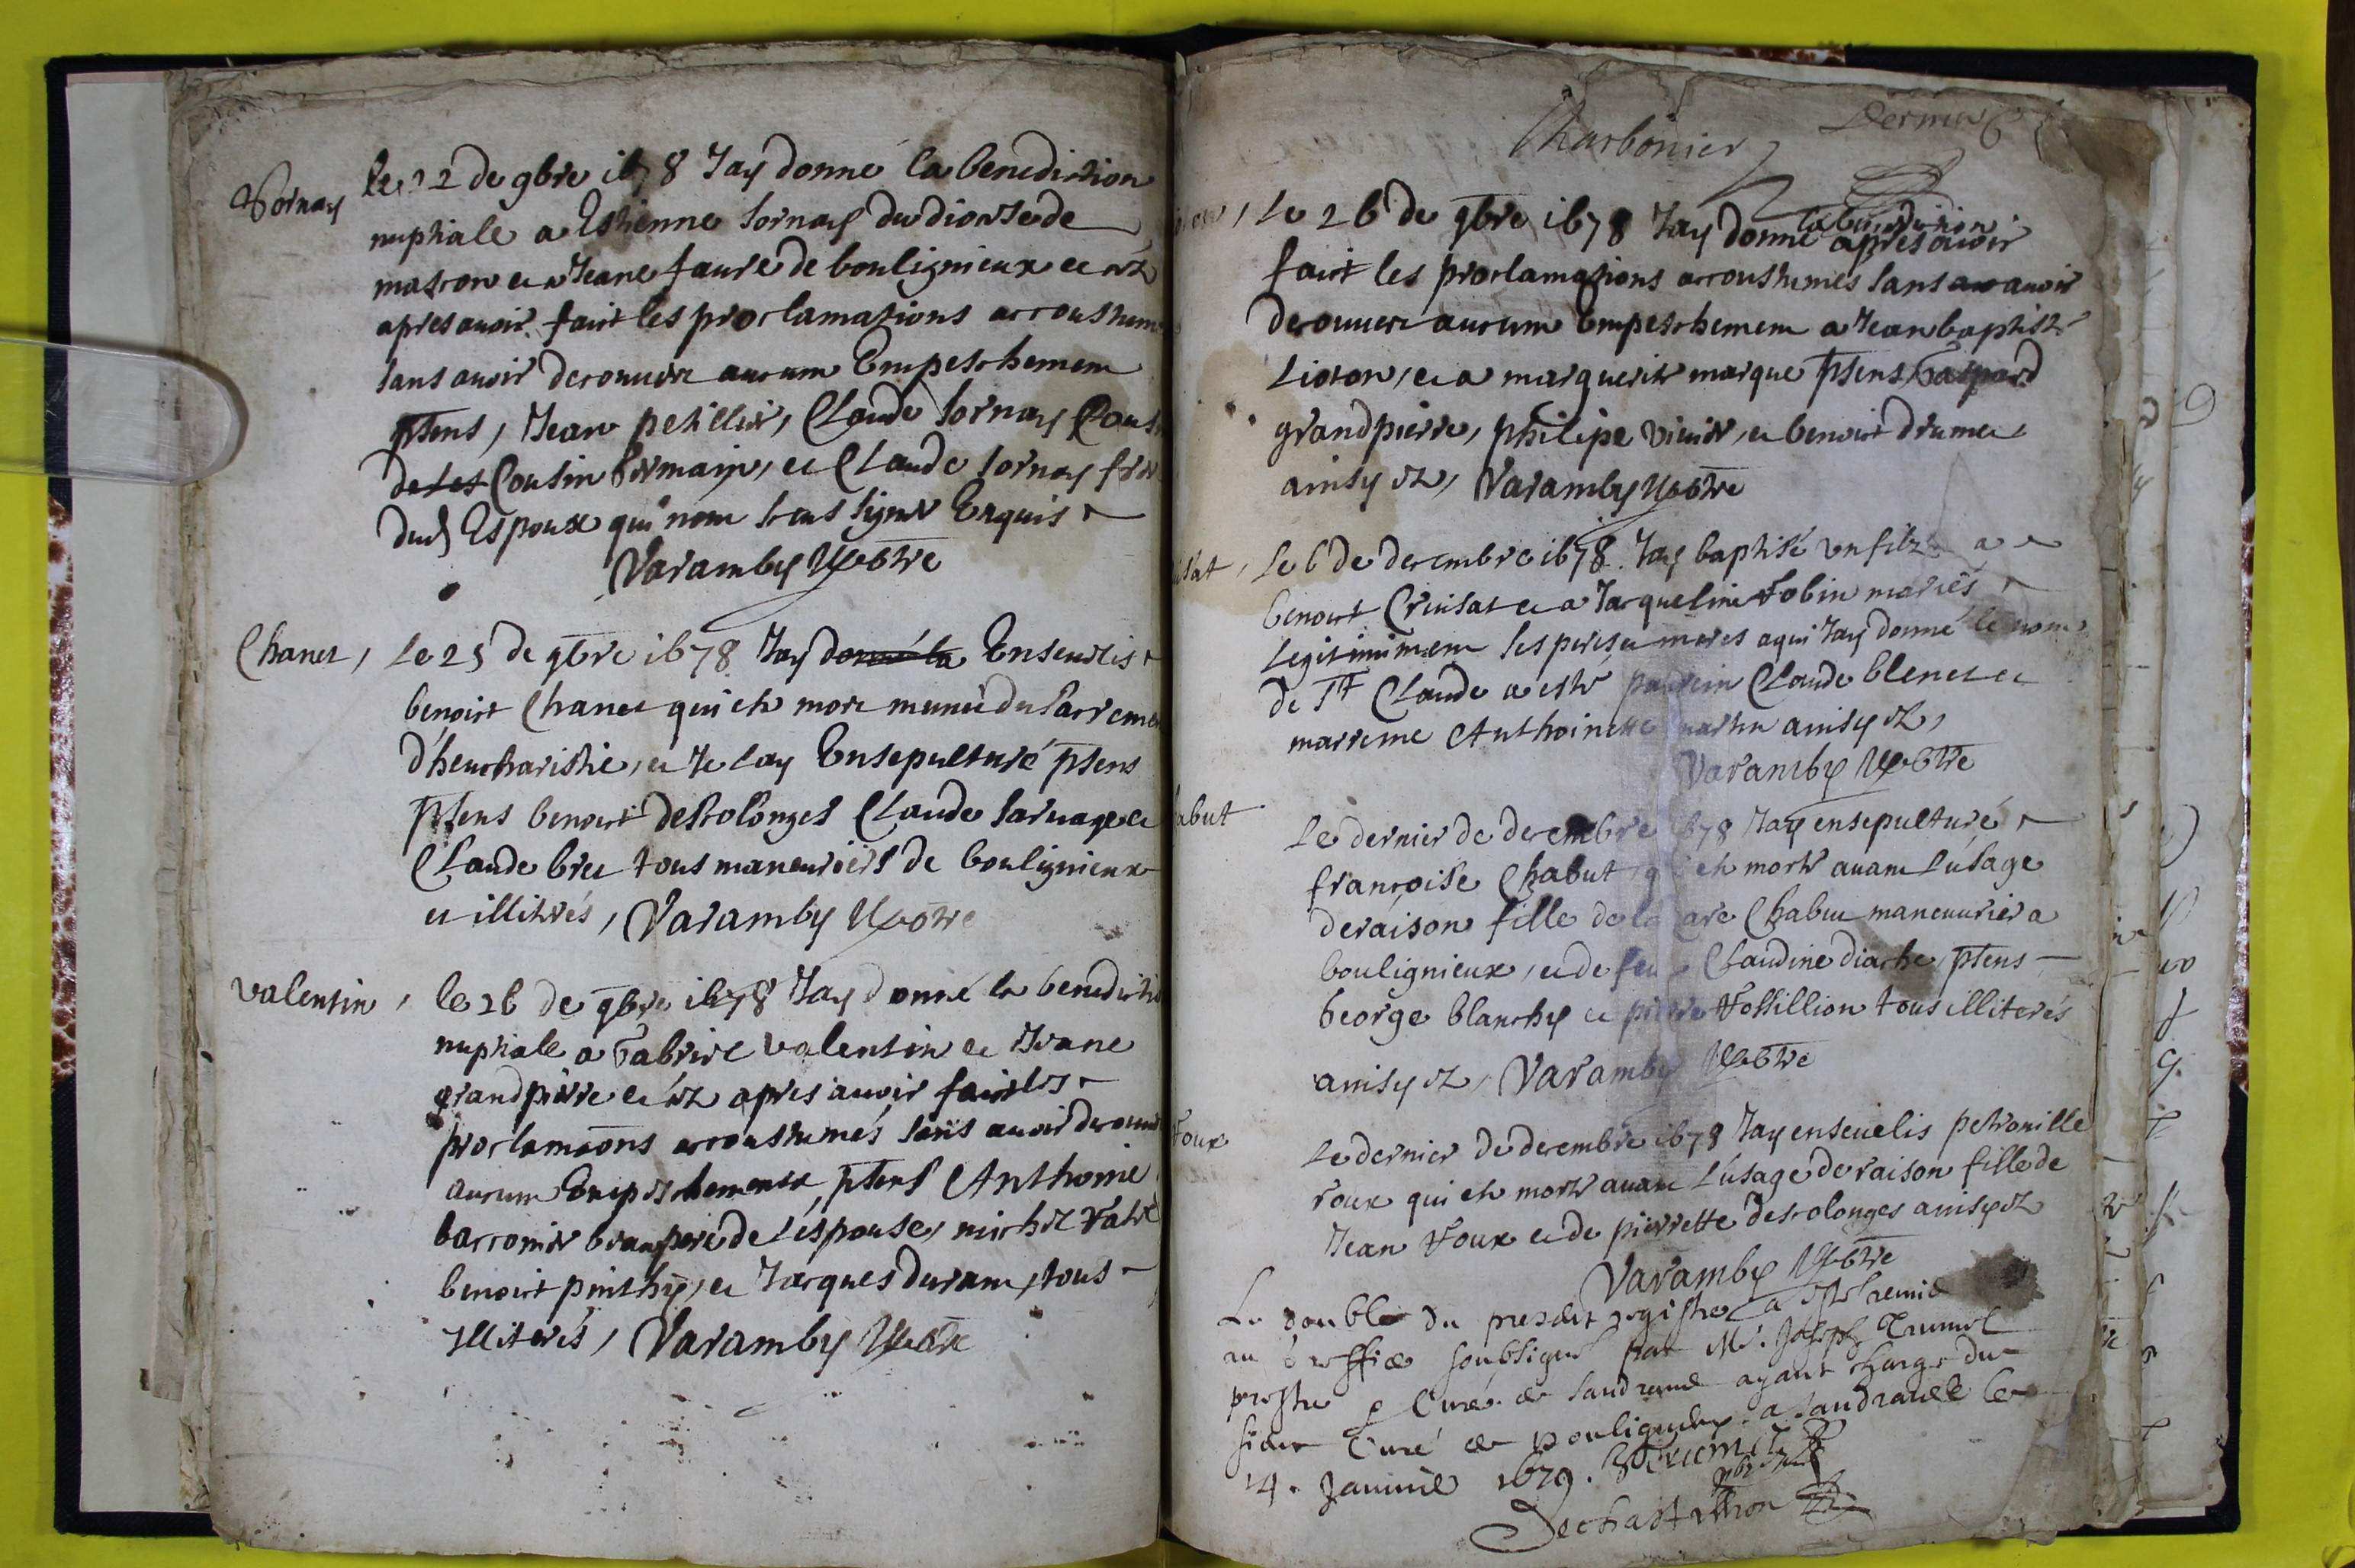 Sornay
le 22 de 9bre 1678 Jay donné la benediction
nuptiale a Estienne Sornay du diocese de
mascon et a Jeane faure de boulignieux et ce
apres avoir faict les proclamations accoustumé
sans avoir decouvert aucum Empeschement
pñts, Jean petillier, Claude Sornay Cous
de ses Cousin Germain, et Claude Sornay frer
dud Espoux qui nom sceus signer Enquis
Varamby
Chanet, Le 25 de 9bre 1678 Jay donné la Ensevelis
benoist Chanet qui est mort muni du Sacremen
d'heucharistie, et Je lay Ensepulturé psens
psens benoist descolonges Claude Sarvage et
Claude bret tous maneuvriers de bouligneux
et illitérés, Varamby
Valentin, le 26 de 9bre 1678 Jay donné la benedictio
nuptiale a Gabriel Valentin et Jeane
grandpierre et ce apres avoir faict les
proclamaõns accoustumés sans avoir decouve
aucum Empeschement psens Anthoine
baccomier beaupere de L'espouse, michel
benoist pinthy, et Jacques Durant, tous
Illiterés, Varamby
Charbonier
Le 26 de 9bre 1678 Jay donné la benediction apres avoir
faict les proclamations accoustumés sans avoir
decouvert aucum Empeschement a Jean baptiste
Lioton, et a marguerite marque psens, Gaspard
grandpierre, philipe vieur, et benoist drumet
ainsy est, Varamby
isat, Le 6 de decembre 1678. Jay baptisé un filz a
benoist Cruisat et a Jacqueline Tobin mariés
Legitimement ses peres et meres a qui Jay donné le nom
de Claude a esté parrein Claude blenet et
marreine Anthoinette martin ainsy est,
Varamby
abut
Le dernier de decembre 1678 Jay ensepulturé
françoise Chabut qui est morte avant L'usage
de raison fille de Chabut maneuvrier a
bouligneux, et de feu Claudine diache, psens
George blanchy et pierre Vossillion tous illiterés
ainsy est, Varamby
roux
Le dernier de decembre 1678 Jay ensevelis petronille
roux qui est morte avant L'usage de raison fille de
Jean roux et de pierrette descolonges ainsy est
Varamby
Le double du present registre a esté remis
au greffier soubsigné par Mr. Joseph Trumel
prestre Curé de Sandrans ayant charge du
sieur Curé de bouligneux. a Sandrans le
14. Janvier 1679.
Dechastillion